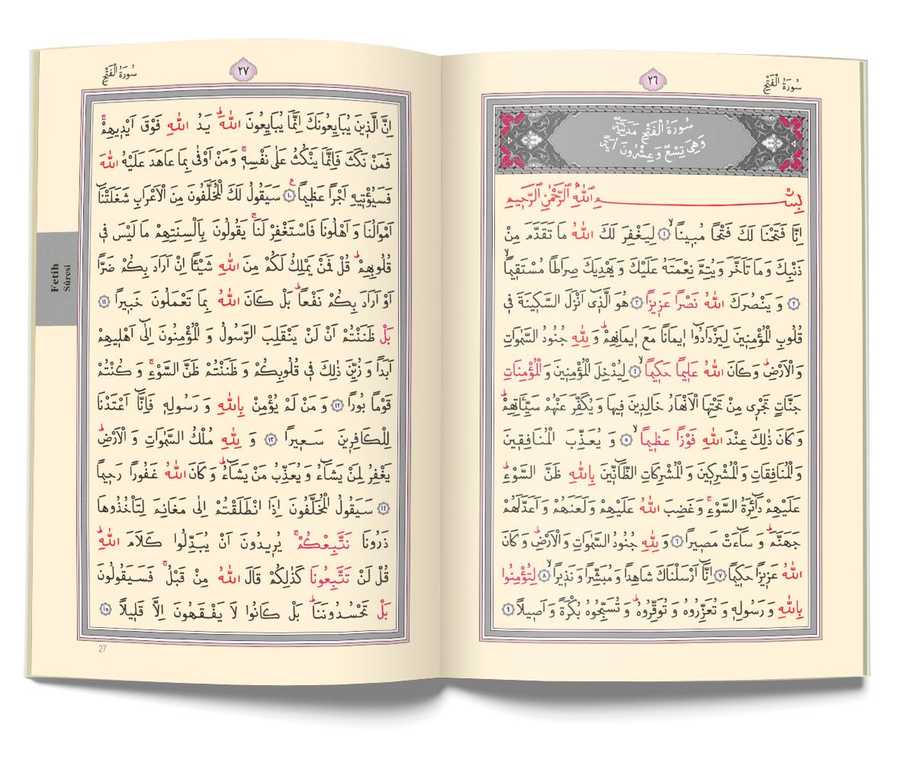 سُورَةُ الْفَتْحِ
٢٦
سُورَةُ الْفَتْحِ مَدَنِيَّةٌ
وَهِيَ تِسْعٌ وَعِشْرُونَ اٰيَةً
بِسْمِ اللّٰهِ الرَّحْمٰنِ الرَّحِيمِ
اِنَّا فَتَحْنَا لَكَ فَتْحًا مُبِينًاۙ ﴿١﴾ لِيَغْفِرَ لَكَ اللّٰهُ مَا تَقَدَّمَ مِنْ
ذَنْبِكَ وَمَا تَاَخَّرَ وَيُتِمَّ نِعْمَتَهُ عَلَيْكَ وَيَهْدِيَكَ صِرَاطًا مُسْتَقِيمًاۙ
﴿٢﴾ وَيَنْصُرَكَ اللّٰهُ نَصْرًا عَزِيزًا ﴿٣﴾ هُوَ الَّذِٓي اَنْزَلَ السَّكِينَةَ فِي
قُلُوبِ الْمُؤْمِنِينَ لِيَزْدَادُٓوا اِيمَانًا مَعَ اِيمَانِهِمْۜ وَلِلّٰهِ جُنُودُ السَّمٰوَاتِ
وَالْاَرْضِۜ وَكَانَ اللّٰهُ عَلِيمًا حَكِيمًاۙ ﴿٤﴾ لِيُدْخِلَ الْمُؤْمِنِينَ وَالْمُؤْمِنَاتِ
جَنَّاتٍ تَجْرِي مِنْ تَحْتِهَا الْاَنْهَارُ خَالِدِينَ فِيهَا وَيُكَفِّرَ عَنْهُمْ سَيِّـَٔاتِهِمْۜ
وَكَانَ ذٰلِكَ عِنْدَ اللّٰهِ فَوْزًا عَظِيمًاۙ ﴿٥﴾ وَيُعَذِّبَ الْمُنَافِقِينَ
وَالْمُنَافِقَاتِ وَالْمُشْرِكِينَ وَالْمُشْرِكَاتِ الظَّٓانِّينَ بِاللّٰهِ ظَنَّ السَّوْءِۜ
عَلَيْهِمْ دَٓائِرَةُ السَّوْءِۚ وَغَضِبَ اللّٰهُ عَلَيْهِمْ وَلَعَنَهُمْ وَاَعَدَّ لَهُمْ
جَهَنَّمَۜ وَسَٓاءَتْ مَصِيرًا ﴿٦﴾ وَلِلّٰهِ جُنُودُ السَّمٰوَاتِ وَالْاَرْضِۜ وَكَانَ
اللّٰهُ عَزِيزًا حَكِيمًا ﴿٧﴾ اِنَّٓا اَرْسَلْنَاكَ شَاهِدًا وَمُبَشِّرًا وَنَذِيرًاۙ ﴿٨﴾ لِتُؤْمِنُوا
بِاللّٰهِ وَرَسُولِهِ وَتُعَزِّرُوهُ وَتُوَقِّرُوهُۜ وَتُسَبِّحُوهُ بُكْرَةً وَاَصِيلًا ﴿٩﴾
سُورَةُ الْفَتْحِ
٢٧
اِنَّ الَّذِينَ يُبَايِعُونَكَ اِنَّمَا يُبَايِعُونَ اللّٰهَۜ يَدُ اللّٰهِ فَوْقَ اَيْدِيهِمْۚ
فَمَنْ نَكَثَ فَاِنَّمَا يَنْكُثُ عَلٰى نَفْسِهِۚ وَمَنْ اَوْفٰى بِمَا عَاهَدَ عَلَيْهُ اللّٰهَ
فَسَيُؤْتِيهِ اَجْرًا عَظِيمًا ﴿١٠﴾ سَيَقُولُ لَكَ الْمُخَلَّفُونَ مِنَ الْاَعْرَابِ شَغَلَتْنَٓا
اَمْوَالُنَا وَاَهْلُونَا فَاسْتَغْفِرْ لَنَاۚ يَقُولُونَ بِاَلْسِنَتِهِمْ مَا لَيْسَ فِي
قُلُوبِهِمْۜ قُلْ فَمَنْ يَمْلِكُ لَكُمْ مِنَ اللّٰهِ شَيْـًٔا اِنْ اَرَادَ بِكُمْ ضَرًّا
اَوْ اَرَادَ بِكُمْ نَفْعًاۜ بَلْ كَانَ اللّٰهُ بِمَا تَعْمَلُونَ خَبِيرًا ﴿١١﴾
بَلْ ظَنَنْتُمْ اَنْ لَنْ يَنْقَلِبَ الرَّسُولُ وَالْمُؤْمِنُونَ اِلٰٓى اَهْلِيهِمْ
اَبَدًا وَزُيِّنَ ذٰلِكَ فِي قُلُوبِكُمْ وَظَنَنْتُمْ ظَنَّ السَّوْءِۚ وَكُنْتُمْ
قَوْمًا بُورًا ﴿١٢﴾ وَمَنْ لَمْ يُؤْمِنْ بِاللّٰهِ وَرَسُولِهِ فَاِنَّٓا اَعْتَدْنَا
لِلْكَافِرِينَ سَعِيرًا ﴿١٣﴾ وَلِلّٰهِ مُلْكُ السَّمٰوَاتِ وَالْاَرْضِۜ
يَغْفِرُ لِمَنْ يَشَٓاءُ وَيُعَذِّبُ مَنْ يَشَٓاءُۜ وَكَانَ اللّٰهُ غَفُورًا رَحِيمًا
﴿١٤﴾ سَيَقُولُ الْمُخَلَّفُونَ اِذَا انْطَلَقْتُمْ اِلٰى مَغَانِمَ لِتَأْخُذُوهَا
ذَرُونَا نَتَّبِعْكُمْۚ يُرِيدُونَ اَنْ يُبَدِّلُوا كَلَامَ اللّٰهِۜ
قُلْ لَنْ تَتَّبِعُونَا كَذٰلِكُمْ قَالَ اللّٰهُ مِنْ قَبْلُۚ فَسَيَقُولُونَ
بَلْ تَحْسُدُونَنَاۜ بَلْ كَانُوا لَا يَفْقَهُونَ اِلَّا قَلِيلًا ﴿١٥﴾
27
Fetih
Sûresi